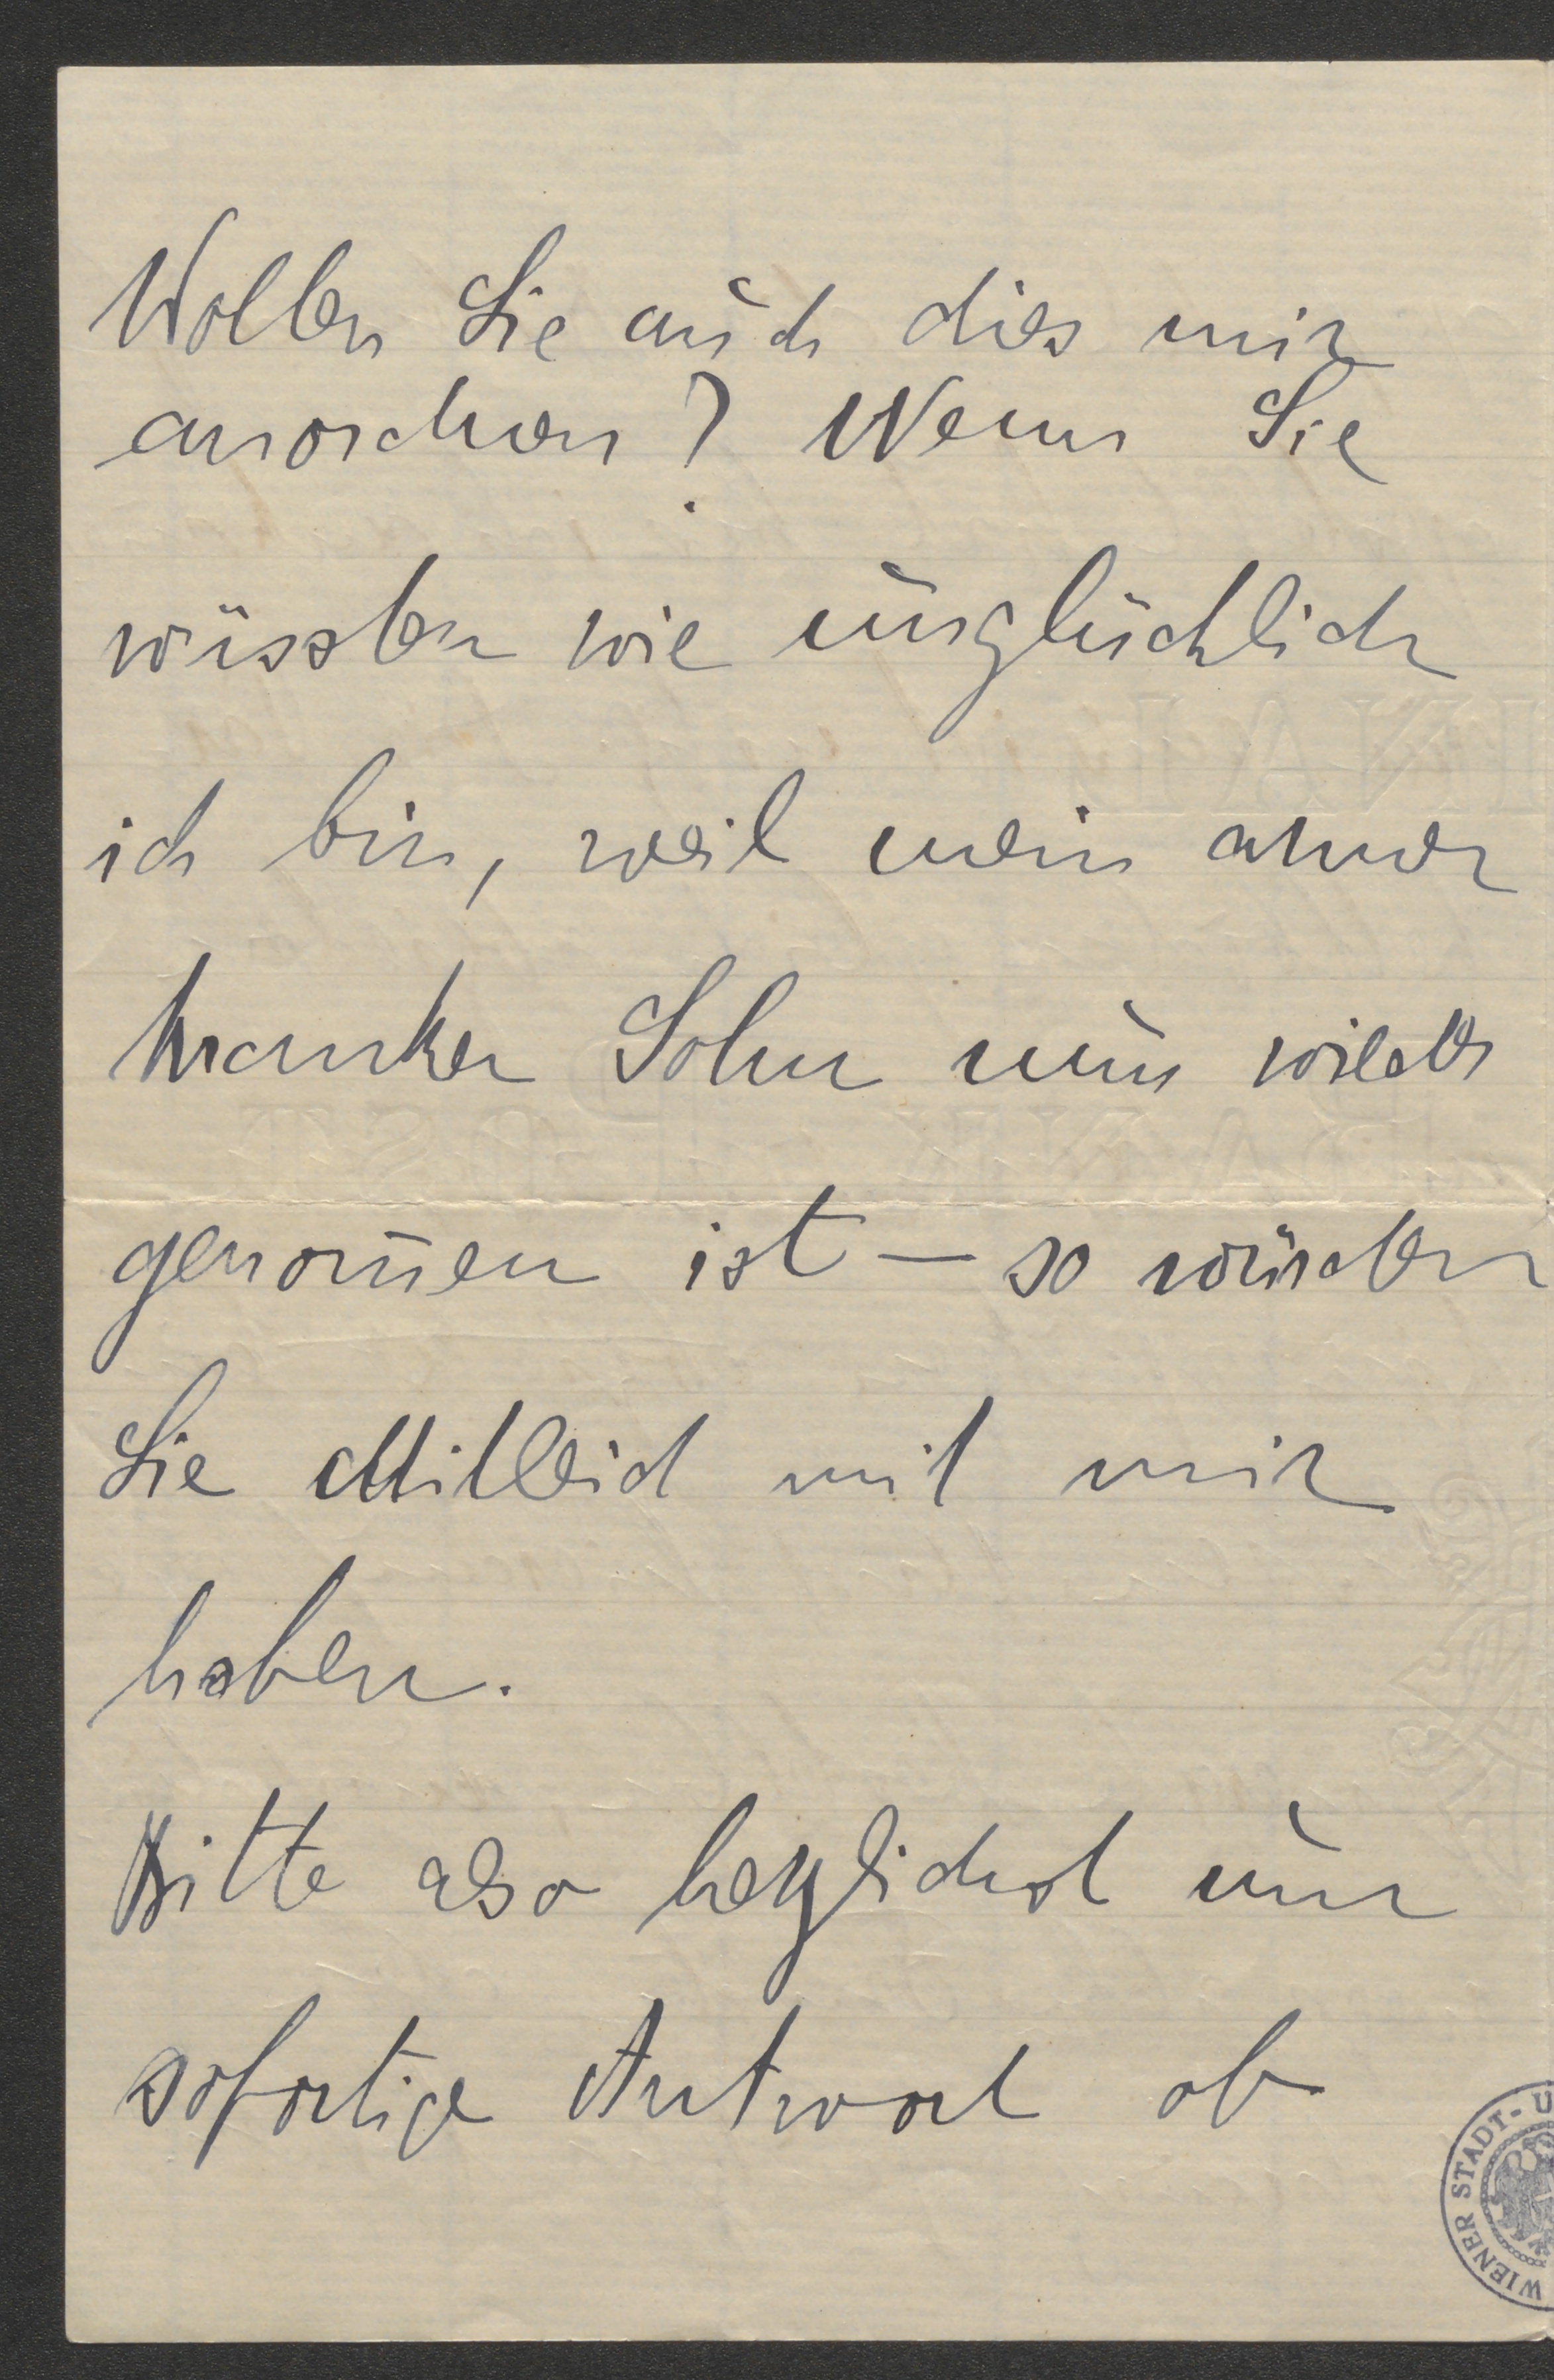 Wollen Sie auch dies mir
anordnen? Wenn Sie
wüssten wie unglücklich
ich bin, weil mein armer
kranker Sohn nun wieder
genom̅en ist – so würden
Sie Mitleid mit mir
haben.
Bitte also herzlichst um
sofortige Antwort ob
WIENER STADT- U